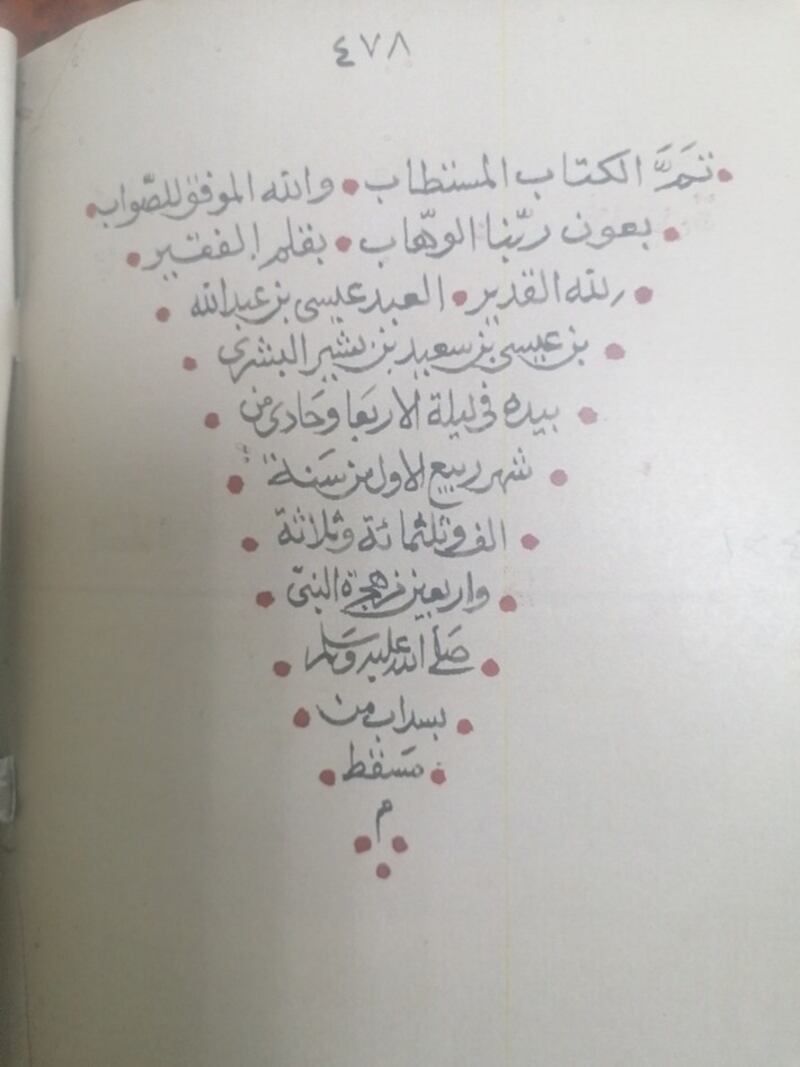 ٤٧٨
تَمَّ الكتاب المستطاب • والله الموفق للصّواب
بعون ربّنا الوهّاب • بقلم الفقير
لله القدير • العبد عيسى بن عبدالله
بن عيسى بن سعيد بن بشير البشرى
بيده فى ليلة الاربعا وحَادى من
شهر ربيع الاول من سَنة
الف وثلثمائة وثلاثة
واربعين من هجرة النبىّ
صَلى الله عليه وسَلم
بسداب من
مَسقط
م